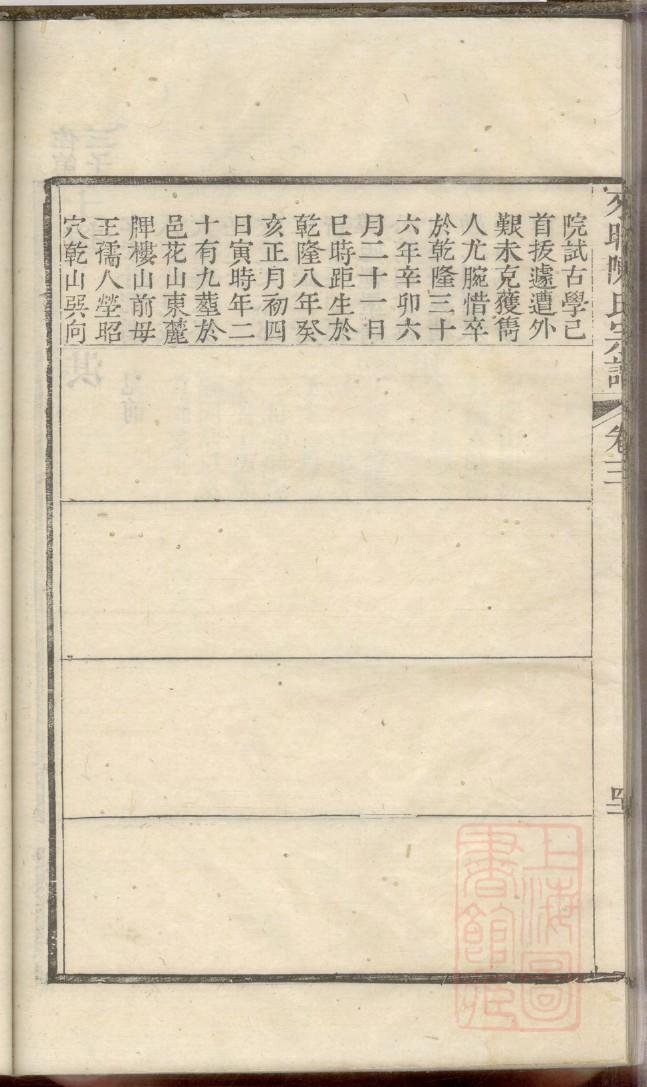 院試古學已
首拔遽遭外
艱未克獲雋
人尤腕惜卒
於乾隆三十
六年辛卯六
月二十一日
巳時距生於
乾隆八年癸
亥正月初四
日寅時年二
十有九塟於
邑花山東麓
牌樓山前母
王孺人塋昭
穴乾山巽向
氏宗譜
卷三
上海圖
書館藏